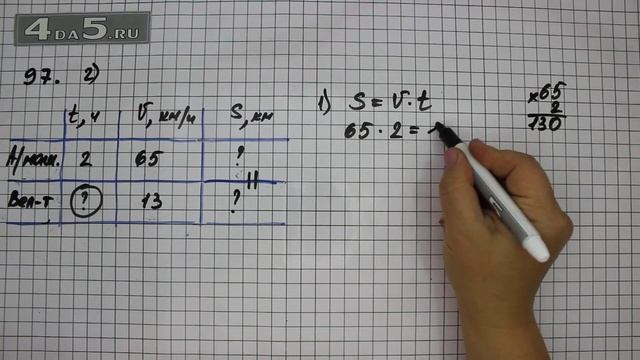 4DA5.RU
97. 2)
t, ч V, км/ч S, км
А/маш. 2 65 ?
Вел-т ? 13 ?
1) S = V · t
65 · 2 =
× 65
2
130